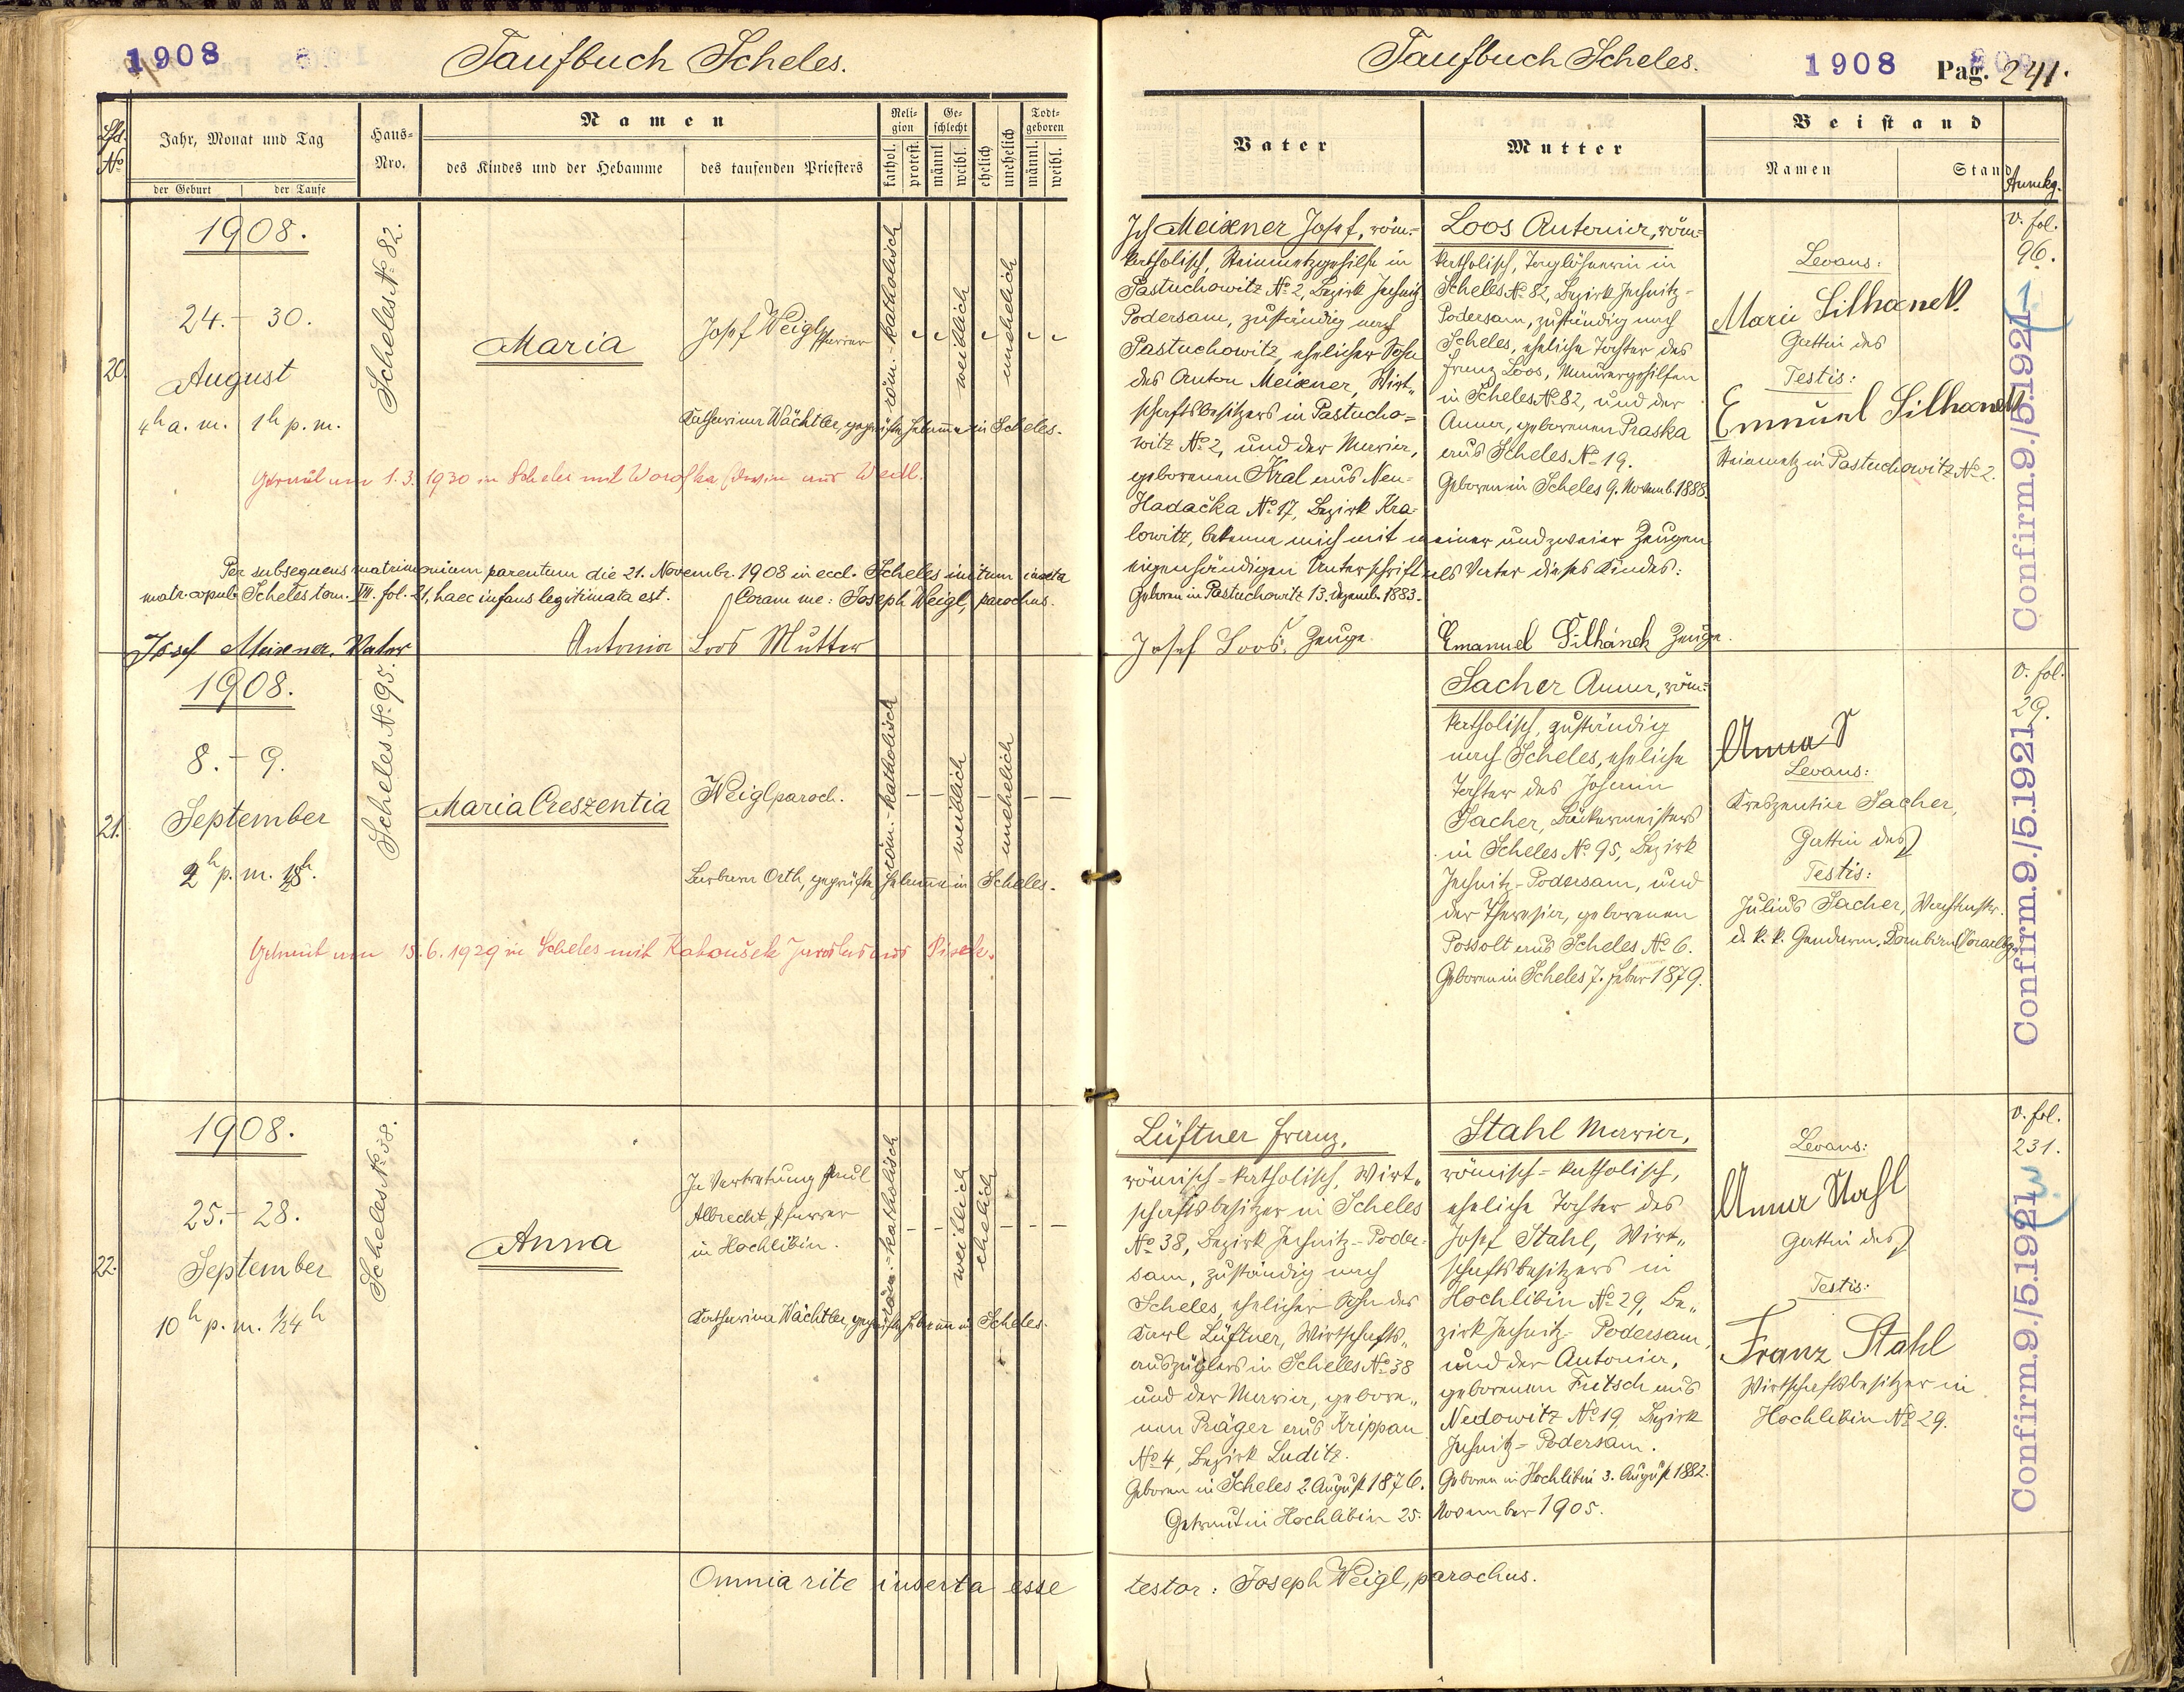 1908
Taufbuch Scheles.
Lfd. No
Jahr, Monat und Tag
der Geburt
der Taufe
Haus-Nro.
Namen
des Kindes und der Hebamme
des taufenden Priesters
Religion
kathol.
protest.
Geschlecht
männl.
weibl.
ehelich
unehelich
Todtgeboren
männl.
weibl.
20.
1908.
24. - 30.
August
4h a. m. 1h p. m.
Scheles No 82.
Maria
Josef Weigl Pfarrer
röm.-katholisch
weiblich
unehelich
Katharina Wächtler, geprüfte Hebamme in Scheles.
Getraut am 1.3.1930 in Scheles mit
Per subsequens matrimonium parentum die 21. Novembr. 1908 in eccl. Scheles initum
matr. copul. Scheles tom. VII. fol. 21, haec infans legitimata est. Coram me: Joseph Weigl, parochus.
Josef Meixner. Vater Antonia Loos Mutter
21.
1908.
8. - 9.
September
2h p. m.
Scheles No 95.
Maria Creszentia
Weigl paroch.
röm.-katholisch
weiblich
unehelich
Barbara Orth, geprüfte Hebamme in Scheles.
Getraut am 15.6.1929 in Scheles mit Jaroslav aus Pisek.
22.
1908.
25. - 28.
September
10h p. m. 1/2 4h
Scheles No 38.
Anna
In Vertretung Paul
Albrecht, Pfarrer
in Hochlibin.
röm.-katholisch
weiblich
ehelich
Katharina Wächtler, geprüfte Hebamme in Scheles.
Omnia rite inserta esse
Taufbuch Scheles.
1908
Pag. 241.
Vater
Mutter
Beistand
Namen
Stand
Anmkg.
Ich Meixner Josef, röm.-
katholisch, Steinmetzgehilfe in
Pastuchowitz No 2, Bezirk Jechnitz-
Podersam, zuständig nach
Pastuchowitz, ehelicher Sohn
des Anton Meixner, Wirt-
schaftsbesitzers in Pastucho-
witz No 2, und der Maria,
geborenen Kral aus Neu-
Hadačka No 17, Bezirk Kra-
lowitz, bekenne mich mit meiner und zweier Zeugen
eigenhändigen Unterschrift als Vater dieses Kindes:
Geboren in Pastuchowitz 13. Dezemb. 1883.
Josef Loos, Zeuge.
Loos Antonia, röm-
katholisch, Taglöhnerin in
Scheles No 82, Bezirk Jechnitz-
Podersam, zuständig nach
Scheles, eheliche Tochter des
Franz Loos, Maurergehilfen
in Scheles No 82, und der
Anna, geborenen Praska
aus Scheles No 19.
Geboren in Scheles 9. Novemb. 1888.
Emanuel Silhánek Zeuge.
Levans:
Marie Silhanek.
Gattin des
Testis:
Emanuel Silhanek
Steinmetz in Pastuchowitz No 2.
v. fol.
96.
Confirm. 9./5. 1921
Sacher Anna, röm-
katholisch, zuständig
nach Scheles, eheliche
Tochter des Johann
Sacher, Bäckermeisters
in Scheles No 95, Bezirk
Jechnitz-Podersam, und
der Theresia, geborenen
Possolt aus Scheles No 6.
Geboren in Scheles 7. Feber 1879.
Anna S
Levans:
Kreszentia Sacher,
Gattin des
Testis:
Julius Sacher, Wachtmstr.
d. k. k. Gendarm.
v. fol.
29.
Confirm. 9./5. 1921
Lüftner Franz,
römisch-katholisch, Wirt-
schaftsbesitzer in Scheles
No 38, Bezirk Jechnitz-Poder-
sam, zuständig nach
Scheles, ehelicher Sohn des
Karl Lüftner, Wirtschafts-
auszüglers in Scheles No 38
und der Maria, gebore-
nen Präger aus Krippau
No 4, Bezirk Luditz.
Geboren in Scheles 2. August 1876.
Stahl Maria,
römisch-katholisch,
eheliche Tochter des
Josef Stahl, Wirt-
schaftsbesitzers in
Hochlibin No 29, Be-
zirk Jechnitz-Podersam,
und der Antonia,
geborenen Fritsch aus
Nedowitz No 19 Bezirk
Jechnitz-Podersam.
Geboren in Hochlibin 3. August 1882.
Getraut in Hochlibin 25. November 1905.
Levans:
Anna Stahl
Gattin des
Testis:
Franz Stahl
Wirtschaftsbesitzer in
Hochlibin No 29.
v. fol.
231.
Confirm. 9./5. 1921
testor: Joseph Weigl, parochus.